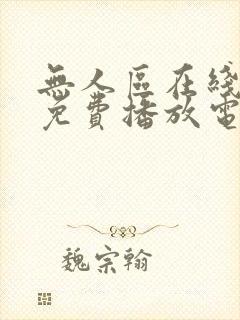 無人區在綫
免費播放電
魏宗翰